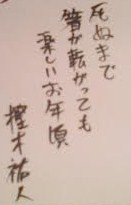 死ぬまで
箸が転がっても
楽しいお年頃
樫才祐人